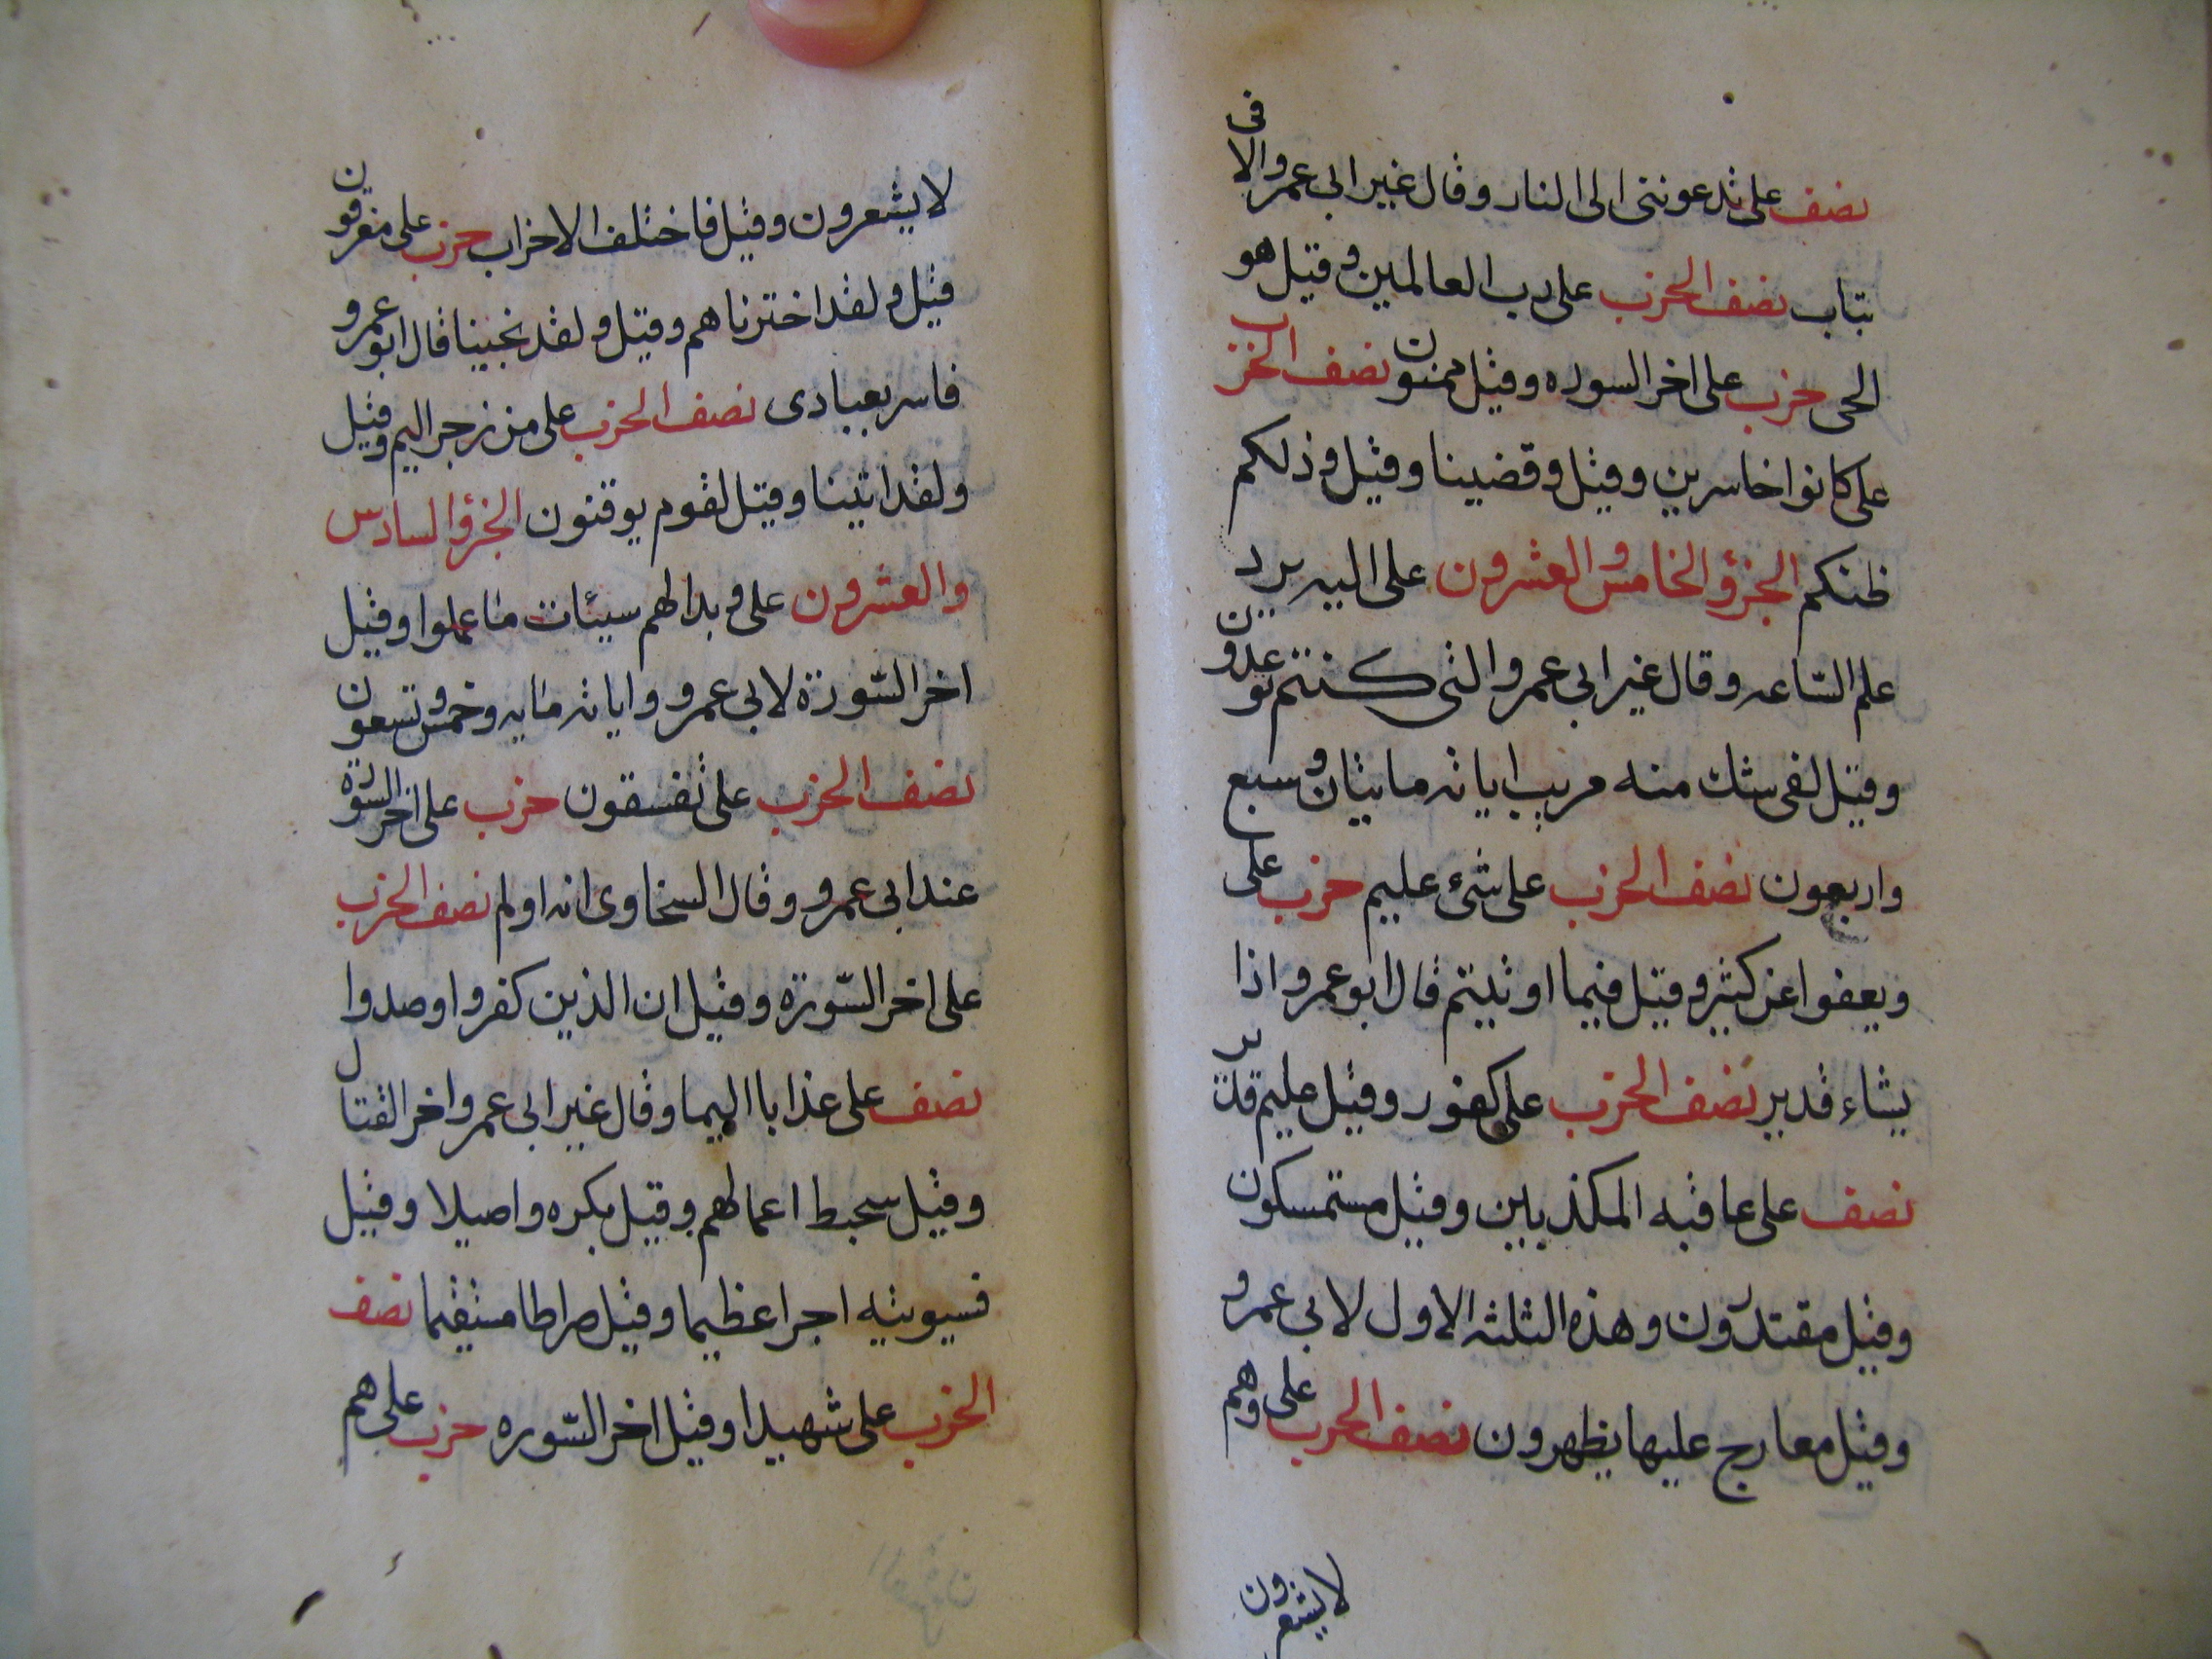 نصف على تدعوننى الى النار وقال غير ابى عمرو الا فى
تباب نصف الحزب على رب العالمين وقيل هو
الحى حزب على اخر السوره وقيل ممنون نصف الحزب
على كانوا خاسرين وقيل وقضينا وقيل وذلكم
ظنكم الجزؤ الخامس والعشرون على اليه يرد
علم الساعه وقال غير ابى عمرو التى كنتم توعدون
وقيل لفى شك منه مريب اياته مايتان وسبع
واربعون نصف الحزب على شئ عليم حزب على
ويعفوا عن كثير وقيل فيما اوتيتم قال ابو عمرو اذا
يشاء قدير نصف الحزب على كفور وقيل عليم قدير
نصف على عاقبه المكذبين وقيل مستمسكون
وقيل مقتدون وهذه الثلثه الاول لابى عمرو
وقيل معارج عليها يظهرون نصف الحزب على وهم
لايشعرون
لايشعرون وقيل فاختلف الاحزاب حزب على مغرقون
قيل ولقد اخترناهم وقيل ولقد نجينا قال ابو عمرو
فاسر بعبادى نصف الحزب على من زجر اليم وقيل
ولقد اتينا وقيل لقوم يوقنون الجزؤ السادس
والعشرون على وبدالهم سيئات ما عملوا وقيل
اخر السورة لابى عمرو واياته مايه وخمس وتسعون
نصف الحزب على تفسقون حزب على اخر السورة
عند ابى عمرو وقال السخاوى انه اولم نصف الحزب
على اخر السورة وقيل ان الذين كفروا وصدوا
نصف على عذابا اليما وقال غير ابى عمرو اخر القتال
وقيل سحبط اعمالهم وقيل بكره واصيلا وقيل
فسيوتيه اجرا عظيما وقيل صراطا مستقيما نصف
الحزب على شهيدا وقيل اخر السوره حزب على هم